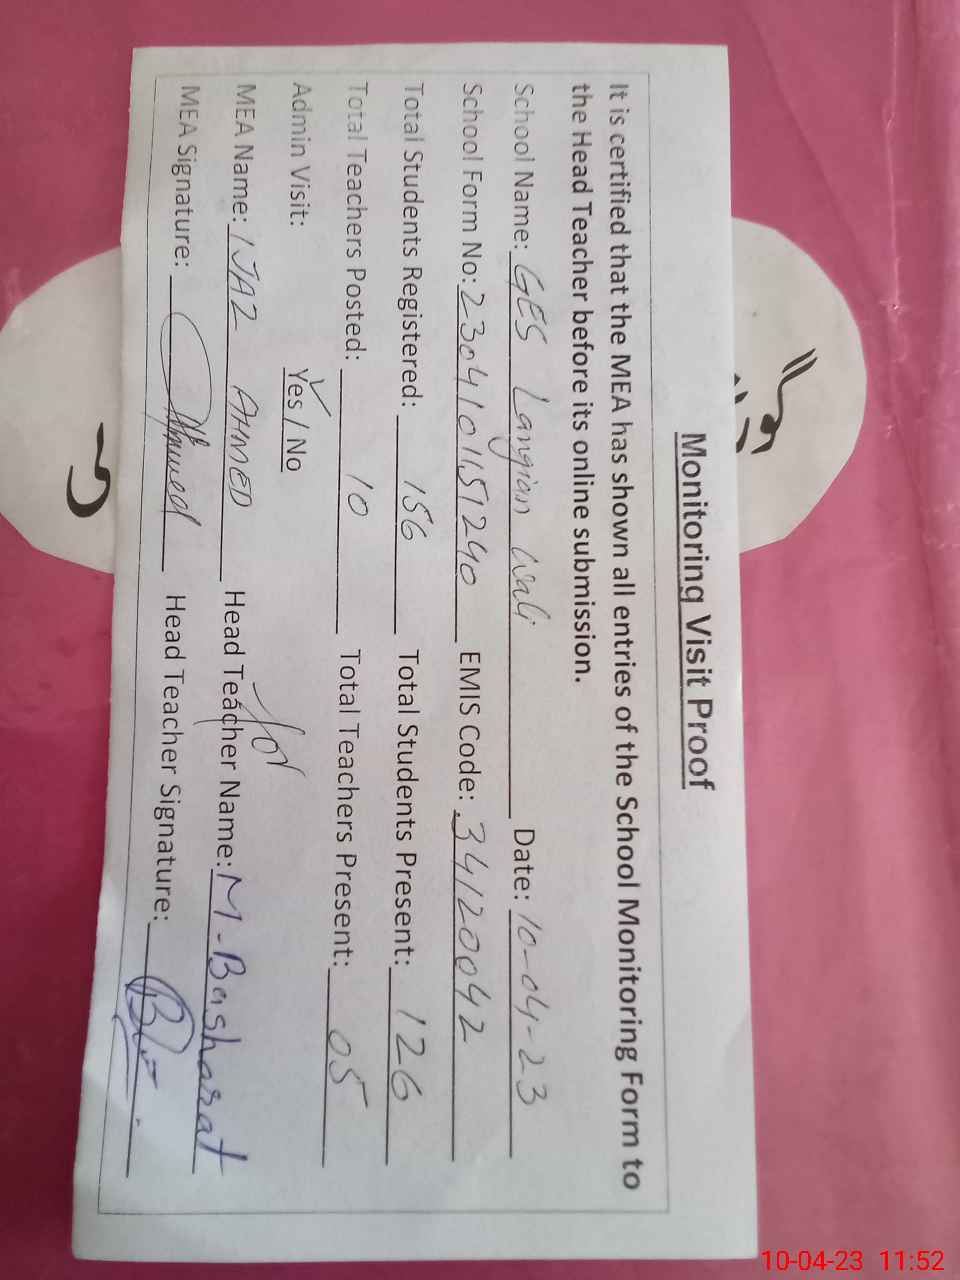 Monitoring Visit Proof
It is certified that the MEA has shown all entries of the School Monitoring Form to
the Head Teacher before its online submission.
School Name: GES Langian Wali Date: 10-04-23
School Form No: 2304101151240 EMIS Code: 34120042
Total Students Registered: 156 Total Students Present: 126
Total Teachers Posted: 10 Total Teachers Present: 05
Admin Visit: Yes / No
MEA Name: IJAZ AHMED Head Teacher Name: M-Basharat
for
MEA Signature: Ahmed Head Teacher Signature:
10-04-23 11:52